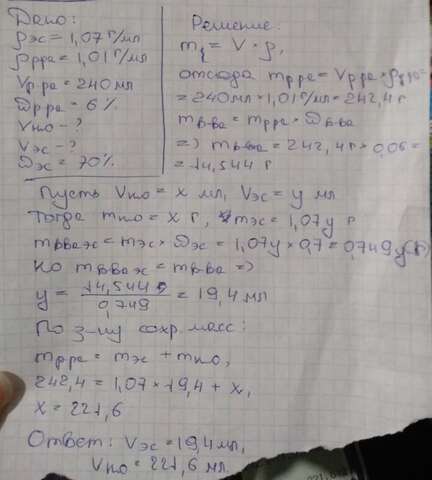 Дано:
ρэс = 1,07 г/мл
ρрра = 1,01 г/мл
Vр-ра = 240 мл
ωрра = 6%
Vн₂о - ?
Vэс - ?
ωэс = 70%
Решение:
m = V · ρ,
отсюда mрра = Vрра × ρрра =
= 240 мл × 1,01 г/мл = 242,4 г
mв-ва = mрра × ωв-ва
=> mв-ва = 242,4 г × 0,06 =
= 14,544 г
Пусть Vн₂о = x мл, Vэс = y мл
Тогда mн₂о = x г, mэс = 1,07y г
mвва эс = mэс × ωэс = 1,07y × 0,7 = 0,749y (г)
Но mвва эс = mв-ва =>
y = 14,544 / 0,749 = 19,4 мл
По з-ну сохр. масс:
mрра = mэс + mн₂о,
242,4 = 1,07 × 19,4 + x,
x = 221,6
Ответ: Vэс = 19,4 мл,
Vн₂о = 221,6 мл.